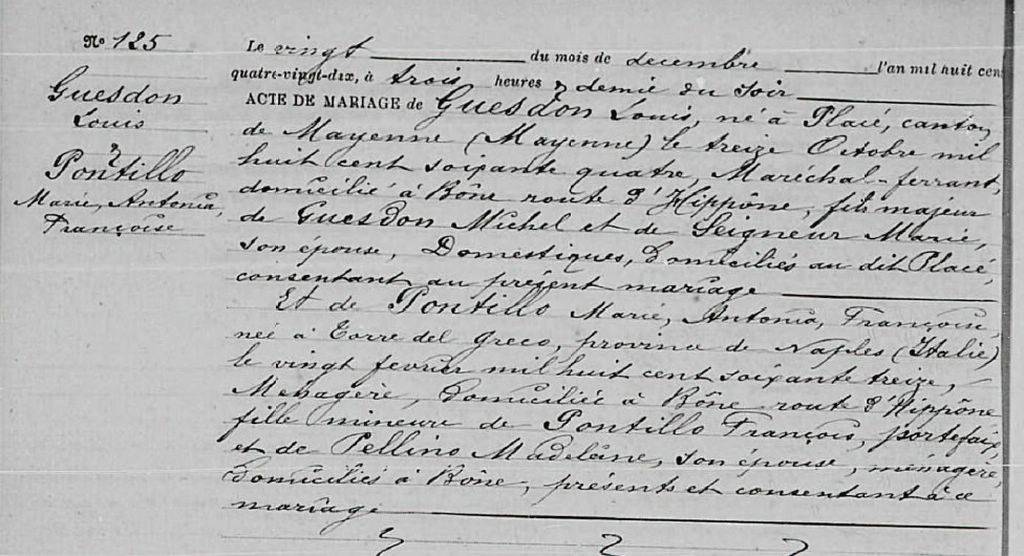 N° 125
Guesdon
Louis
&
Pontillo
Marie, Antonia,
Françoise
Le vingt du mois de decembre l'an mil huit cent
quatre-vingt-dix, à trois heures & demie du soir
ACTE DE MARIAGE de Guesdon Louis, né à Placé, canton
de Mayenne (Mayenne) le treize Octobre mil
huit cent soixante quatre, Maréchal-ferrant,
domicilié à Bône route d'Hippône, fils majeur
de Guesdon Michel et de Seigneur Marie,
son épouse, Domestiques, domiciliés au dit Placé,
consentant au présent mariage
Et de Pontillo Marie, Antonia, Françoise,
née à Torre del Greco, province de Naples (Italie)
le vingt fevrier mil huit cent soixante treize,
Menagère, domiciliée à Bône route d'Hippône
fille mineure de Pontillo François, portefaix,
et de Pellino Madeleine, son épouse, ménagère,
domiciliés à Bône, présents et consentant à ce
mariage